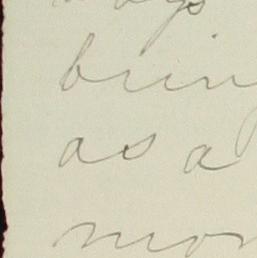 brin
as a
mor